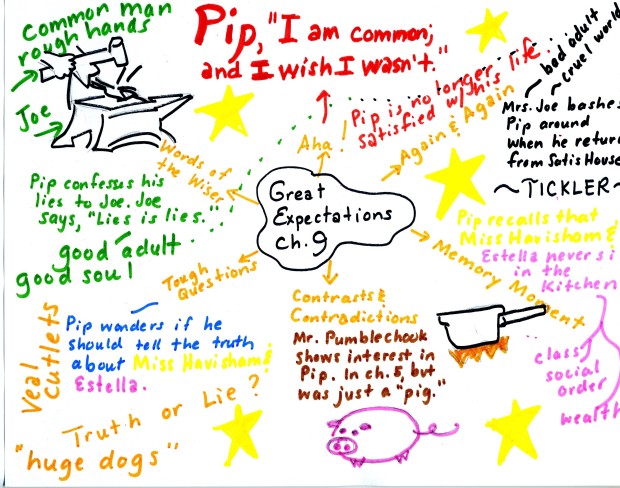 Common man
rough hands
Joe
Pip, "I am common,
and I wish I wasn't."
Aha!
Pip is no longer
satisfied w/ this life.
Again & Again
bad adult
cruel world
Mrs. Joe bashes
Pip around
when he return
from Satis House
~TICKLER~
Words of
the Wiser
Pip confesses his
lies to Joe. Joe
says, "Lies is lies."
good adult
good soul
Great
Expectations
Ch. 9
Tough
Questions
Pip wonders if he
should tell the truth
about Miss Havisham &
Estella.
Veal
Cutlets
Truth or Lie?
"huge dogs"
Contrasts &
Contradictions
Mr. Pumblechook
shows interest in
Pip. In ch. 5, but
was just a "pig."
Memory Moment
Pip recalls that
Miss Havisham &
Estella never si
in the
Kitchen
class
social
order
wealth